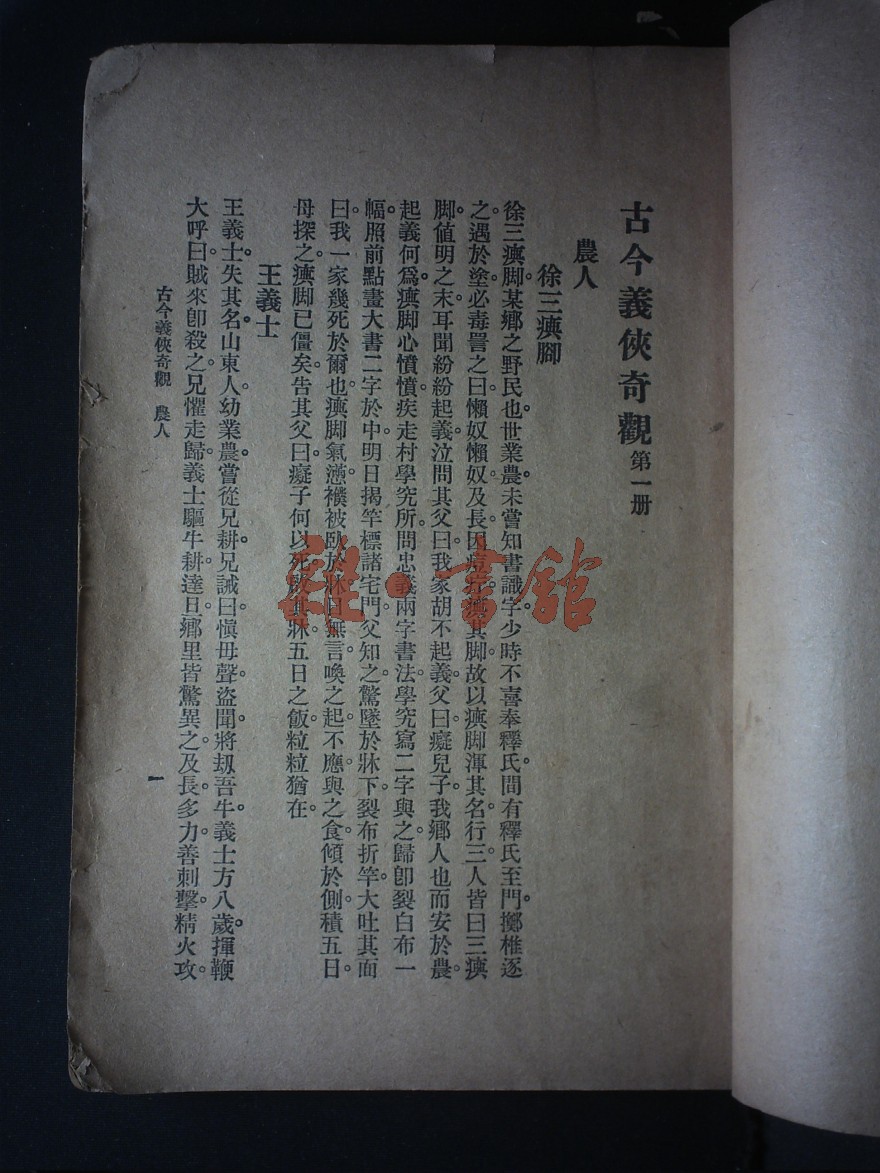 古今義俠奇觀第一册
農人
徐三瘼腳
徐三瘼脚某鄉之野民也世業農未嘗知書識字少時不喜奉釋氏間有釋氏至門擲椎逐
之遇於塗必毒詈之曰懶奴懶奴及長因瘼其脚故以瘼脚渾其名行三人皆曰三瘼
脚值明之末耳聞紛紛起義泣問其父曰我家胡不起義父曰癡兒子我鄉人也而安於農
起義何爲瘼脚心憤憤疾走村學究所問忠義兩字書法學究寫二字與之歸卽裂白布一
幅照前點畫大書二字於中明日揭竿標諸宅門父知之驚墜於牀下裂布折竿大吐其面
曰我一家幾死於爾也瘼脚氣懣襆被臥於牀且無言喚之起不應與之食傾於側積五日
母探之瘼脚已僵矣告其父曰癡子何以死啟其牀五日之飯粒粒猶在
王義士
王義士失其名山東人幼業農嘗從兄耕兄誡曰愼毋聲盜聞將刼吾牛義士方八歲揮鞭
大呼曰賊來卽殺之兄懼走歸義士驅牛耕達旦鄉里皆驚異之及長多力善刺擊精火攻
古今義俠奇觀 農人
一
雜·書館